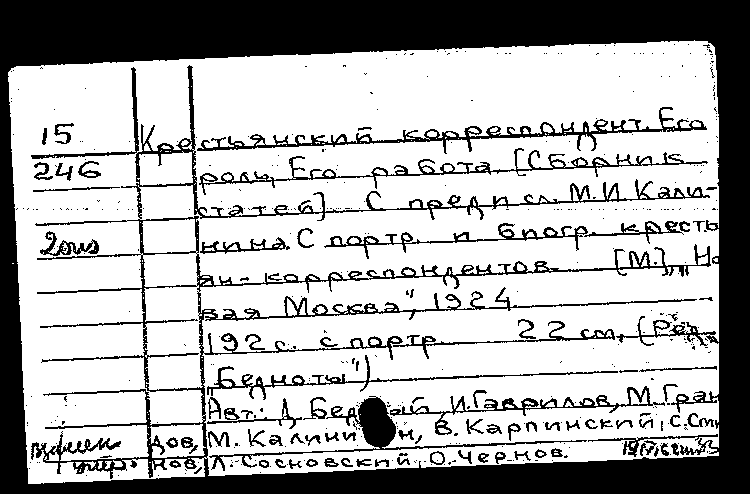 15 Крестьянский корреспондент. Его
246 роль, Его работа [Сборник
статей] С предисл. М.И. Кали-
нина. С портр. и биогр. кресть
ян-корреспондентов. [М.], „Но
вая Москва", 1924.
192 с. с портр. 22 см, (Ред.
„Бедноты")
Авт.: Д. Бедный, И. Гаврилов, М. Гран
дов, М. Калинин, В. Карпинский, С.
нов, Л. Сосновский, О. Чернов.